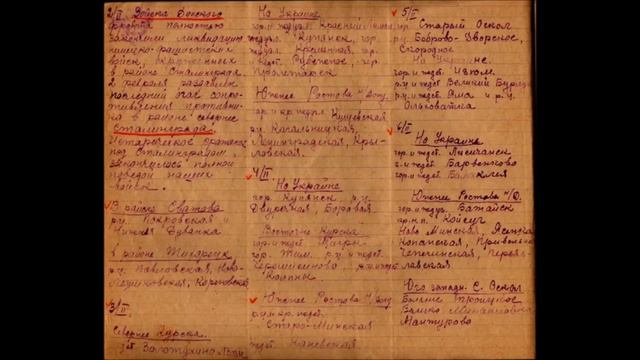 2/II Войска Донского
фронта полностью
закончили ликвидацию
немецко-фашистских
войск, окруженных
в районе Сталинграда.
2 февраля раздавлен
последний очаг сопро-
тивления противни-
ка в районе севернее
Сталинграда.
Историческое сражение
под Сталинградом,
закончилось полной
победой наших
войск.
В районе Сватова
р.ц. Покровская и
Нижняя Дуванка
в районе Тихорецк
р.ц. Павловская, Ново-
3/II
Севернее Курска
Золотухино
На Украине
Красный Лиман
Купянск, гор.
Кременная, гор.
Рубежное, гор.
Пролетарск
Южнее Ростова н/Дону
Кущевская
р.ц. Кагальницкая,
Ленинградская, Кры-
ловская.
4/II
На Украине
гор. Купянск р.ц.
Двуречная, Боровая
Восточнее Курска
гор. и ждст. Щигры
гор. Тим. р.ц. и ждст.
Колпны
Южнее Ростова н/Дону
р.ц. и кр. ждст.
Старо-Минская
ждст. Каневская
5/II
гор. Старый Оскол
р.ц. Боброво-Дворское,
Скородное
На Украине.
гор. и ждст. Изюм.
р.ц. и ждст. Великий Бурлук
Ольховатка
6/II
На Украине
гор. и ждст. Лисичанск
г. и ждст. Барвенково
гор. и ждст. Балаклея
Южнее Ростова н/Д.
гор. и ждст. Батайск
Койсуг
Ново Минская, Ясенская
Копанская, Привольная
Чепигинская, Переяс-
лавская
Юго западн. С. Оскол
Больше Троицкое
Велико Михайловка
Мантурово